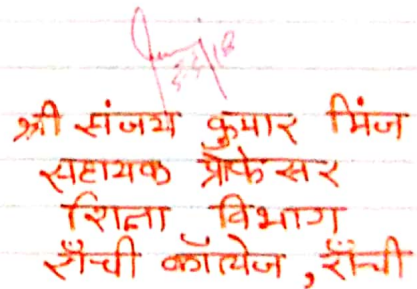 श्री संजय कुमार मिंज
सहायक प्रोफेसर
शिक्षा विभाग
राँची कॉलेज, राँची